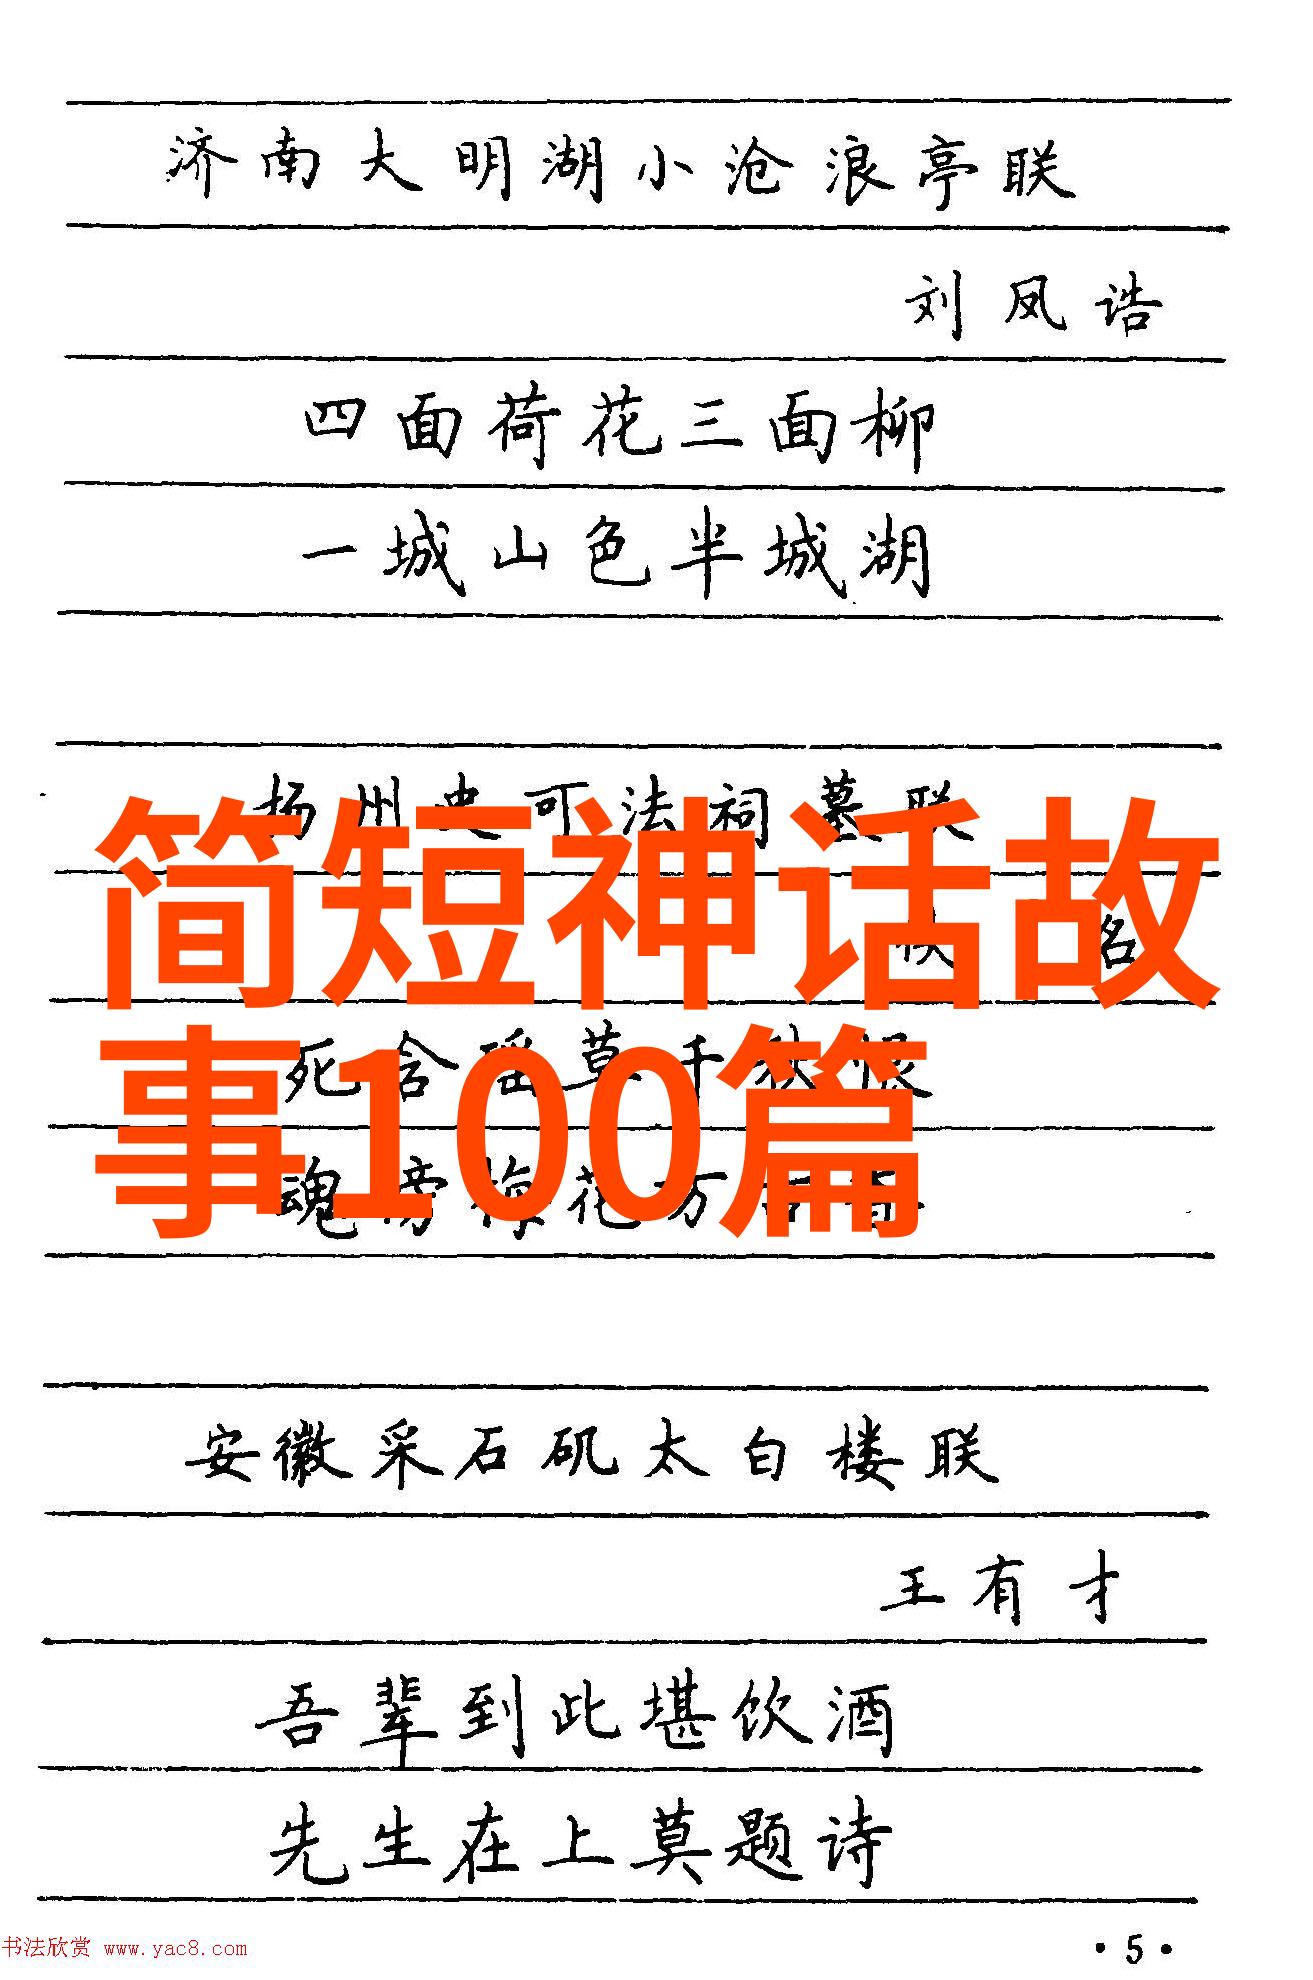 济南大明湖小沧浪亭联
刘凤诰
四面荷花三面柳
一城山色半城湖
扬州史可法祠墓联
简短神话故
名
死含瑶草千秋恨
事100篇
魂傍梅花万古香
安徽采石矶太白楼联
王有才
吾辈到此堪饮酒
先生在上莫题诗
书法欣赏 www.yac8.com
·5·